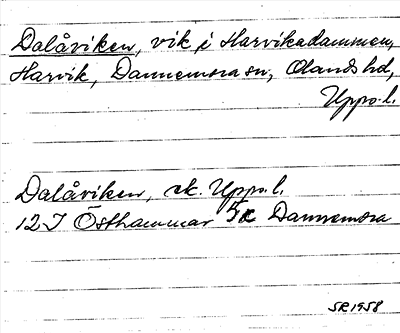 Dalåviken, vik i Harvikadammen,
Harvik, Dannemora sn, Olands hd,
Uppo.l.
Dalåviken, ek. Uppo.l.
12 I Östhammar 5k Dannemora
SR 1958